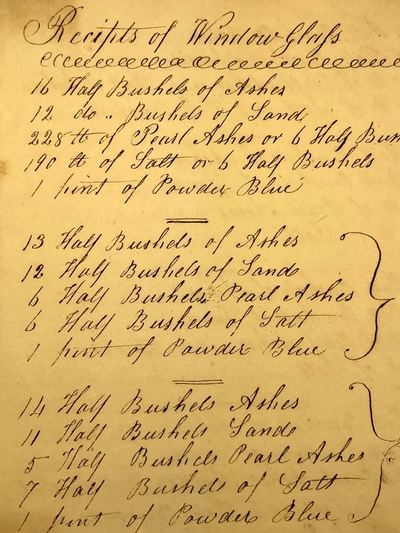 Recipts of Window Glass
16 Half Bushels of Ashes
12 do .. Bushels of Sand
228 ℔ of Pearl Ashes or 6 Half
190 ℔ of Salt or 6 Half Bushels
1 pint of Powder Blue
13 Half Bushels of Ashes
12 Half Bushels of Sand
6 Half Bushels Pearl Ashes
6 Half Bushels of Salt
1 pint of Powder Blue
14 Half Bushels Ashes
11 Half Bushels Sand
5 Half Bushels Pearl Ashes
7 Half Bushels of Salt
1 pint of Powder Blue